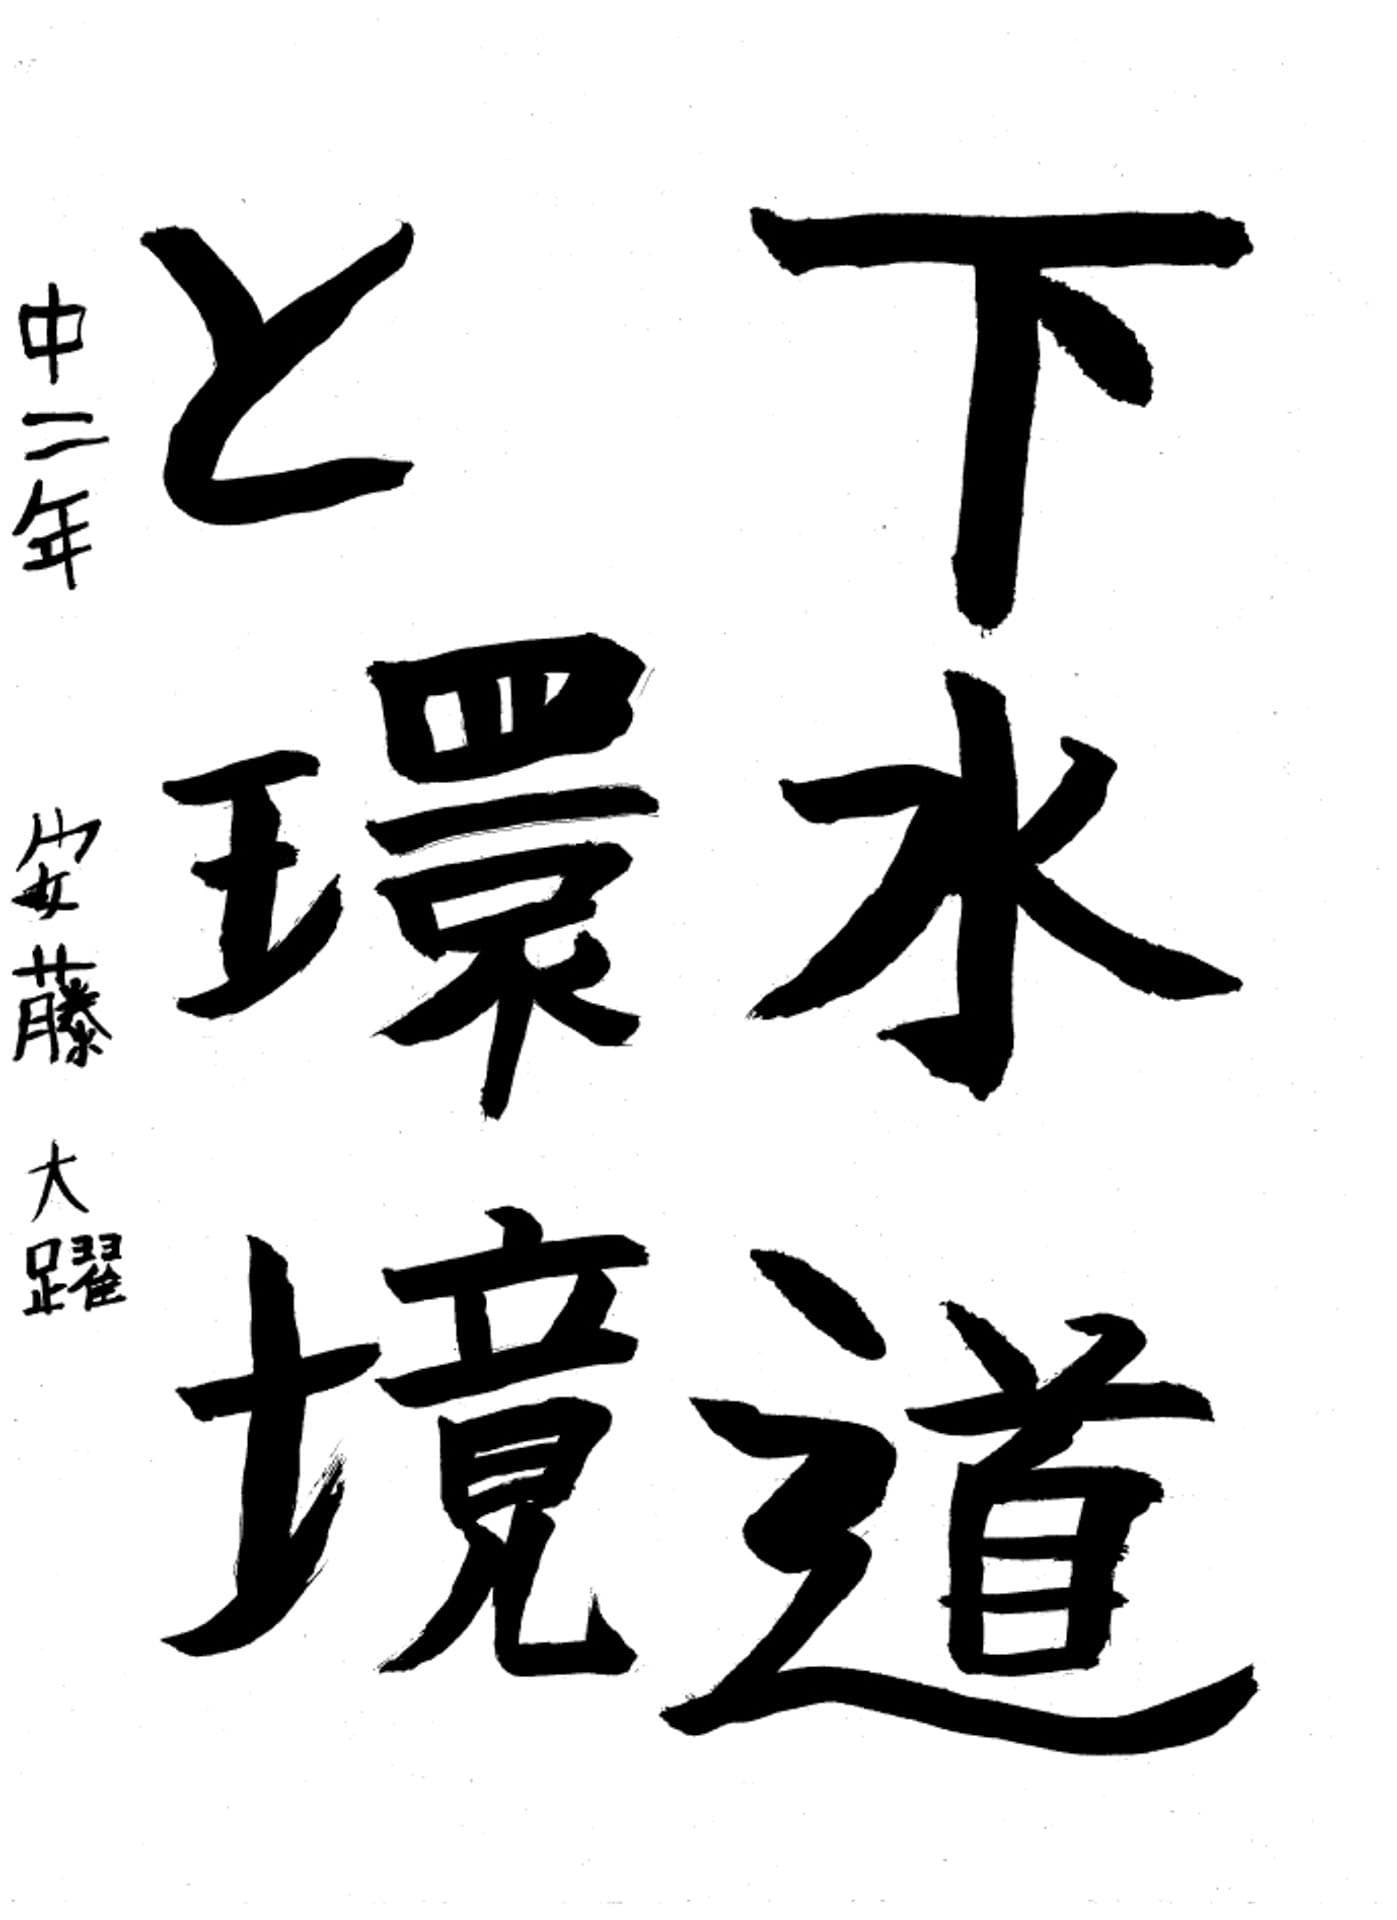 下水道
と環境
中二年 安藤大躍